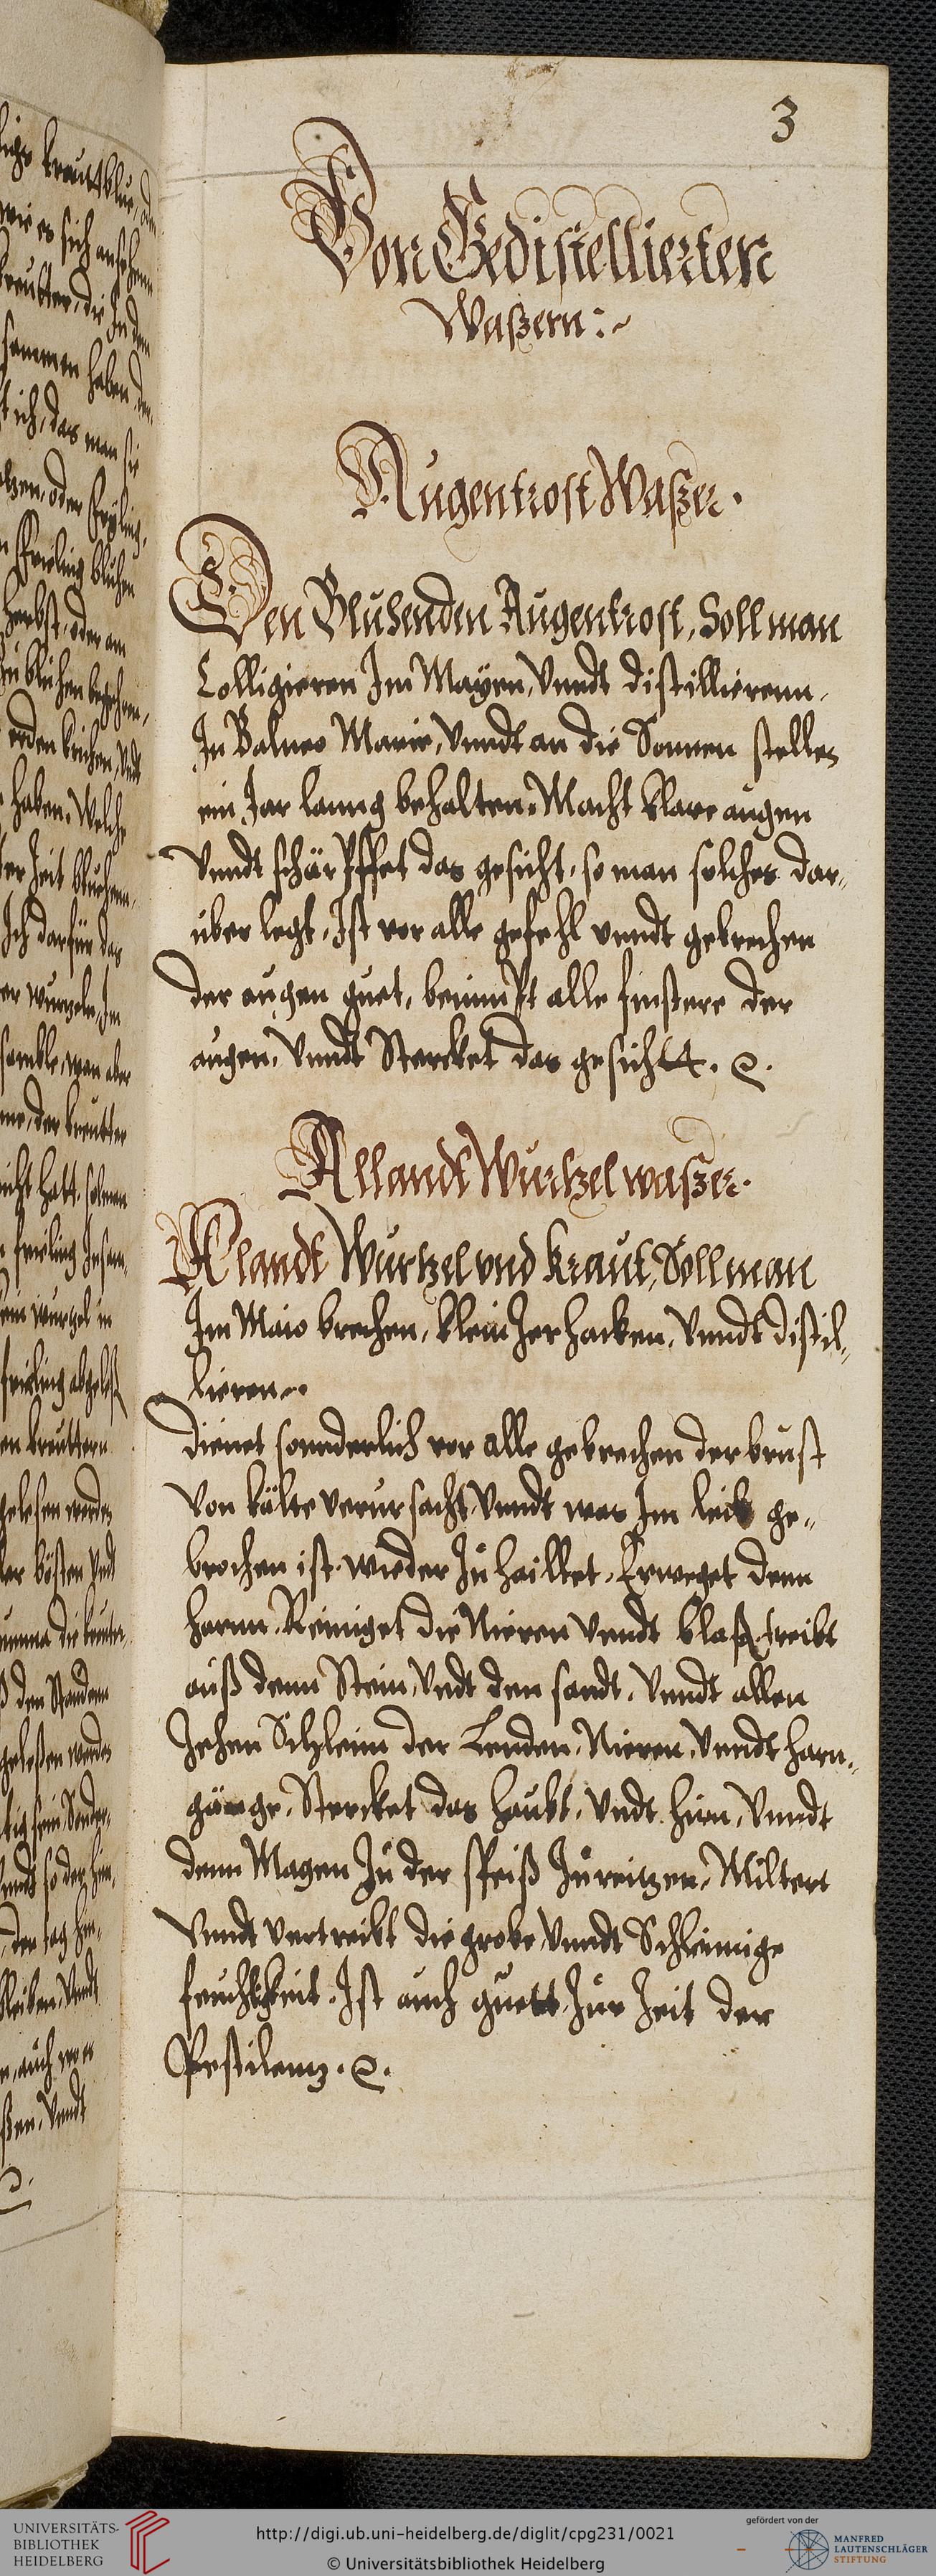 3
Von Gedistellierten
Waßern :~
Augentrost Waßer .
Den Bluhenden Augentrost, Soll man
Colligieren Im Mayen, Vnndt distillierenn,
In Balneo Mariæ, Vnndt an die Sonnen stelle,
ein Jar lanng behalten, Macht klare augen
Vnndt schärpffet das gesicht, so man solches dar„
über legt, Ist vor alle gefehl vnndt gebrechen
der augen guet, benimpt alle finstere der
augen, Vnndt Stercket das gesichtt. ꝛc.
Allandt Wurtzel waßer.
Alandt Wurtzel vnd kraut, Soll man
Im Maio brechen, klein Zerhacken, Vnndt distil„
lieren.
Dienet sonnderlich vor alle gebrechen der brust
Von kälte verursacht, Vnndt was Im leib ge„
brochen ist wieder Zu haillet, Erweget denn
harnn, Reiniget die Nieren Vnndt blaß, treibt
auß denn Stein, Vndt den sandt, Vnndt allen
Zehen Schleim der Lenden, Nieren, Vnndt harn„
gänge, Stercket das haubt, Vndt hirn, Vnndt
denn Magen Zu der speiß Zu reitzen, Miltert
Vnndt vertreibt die grobe Vnndt Schleimige
feuchtkeit, Ist auch guett Zur Zeit der
Pestilentz. ꝛc.
UNIVERSITÄTS-
BIBLIOTHEK
HEIDELBERG
http://digi.ub.uni-heidelberg.de/diglit/cpg231/0021
© Universitätsbibliothek Heidelberg
gefördert von der
MANFRED
LAUTENSCHLÄGER
STIFTUNG